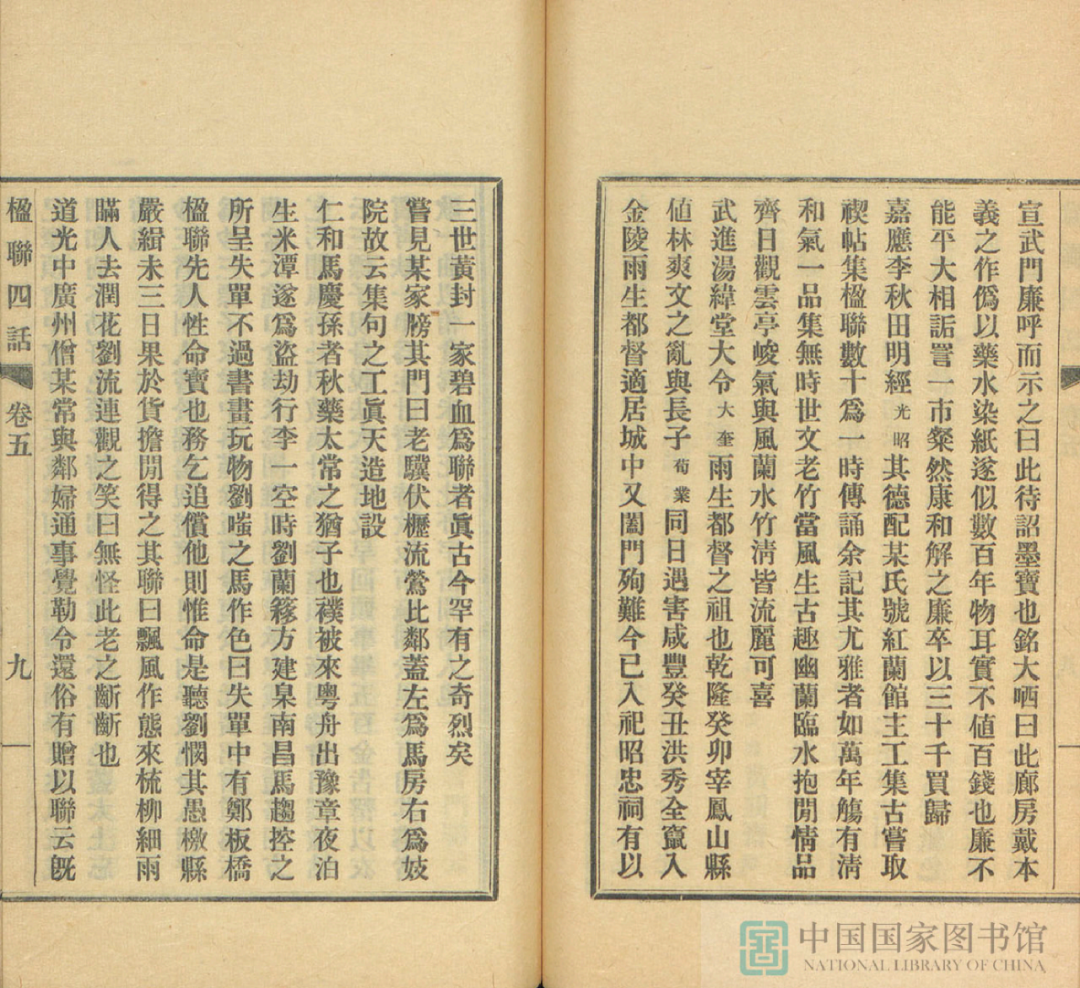 宣武門廉呼而示之曰此待詔墨寶也銘大哂曰此廊房戴本
義之作僞以藥水染紙遂似數百年物耳實不値百錢也廉不
能平大相詬詈一市粲然康和解之廉卒以三十千買歸
嘉應李秋田明經光昭其德配某氏號紅蘭館主工集古嘗取
禊帖集楹聯數十爲一時傳誦余記其尤雅者如萬年觴有淸
和氣一品集無時世文老竹當風生古趣幽蘭臨水抱閒情品
齊日觀雲亭峻氣與風蘭水竹淸皆流麗可喜
武進湯緯堂大令大奎雨生都督之祖也乾隆癸卯宰鳳山縣
値林爽文之亂與長子荀業同日遇害咸豐癸丑洪秀全竄入
金陵雨生都督適居城中又闔門殉難今已入祀昭忠祠有以
三世黃封一家碧血爲聯者眞古今罕有之奇烈矣
嘗見某家牓其門曰老驥伏櫪流鶯比鄰蓋左爲馬房右爲妓
院故云集句之工眞天造地設
仁和馬慶孫者秋藥太常之猶子也襆被來粵舟出豫章夜泊
生米潭遂爲盜劫行李一空時劉蘭簃方建臬南昌馬趨控之
所呈失單不過書畫玩物劉嗤之馬作色曰失單中有鄭板橋
楹聯先人性命寶也務乞追償他則惟命是聽劉憫其愚檄縣
嚴緝未三日果於貨擔閒得之其聯曰飄風作態來梳柳細雨
瞞人去潤花劉流連觀之笑曰無怪此老之齗齗也
道光中廣州僧某常與鄰婦通事覺勒令還俗有贈以聯云旣
楹聯四話 卷五 九
中国国家图书馆
NATIONAL LIBRARY OF CHINA